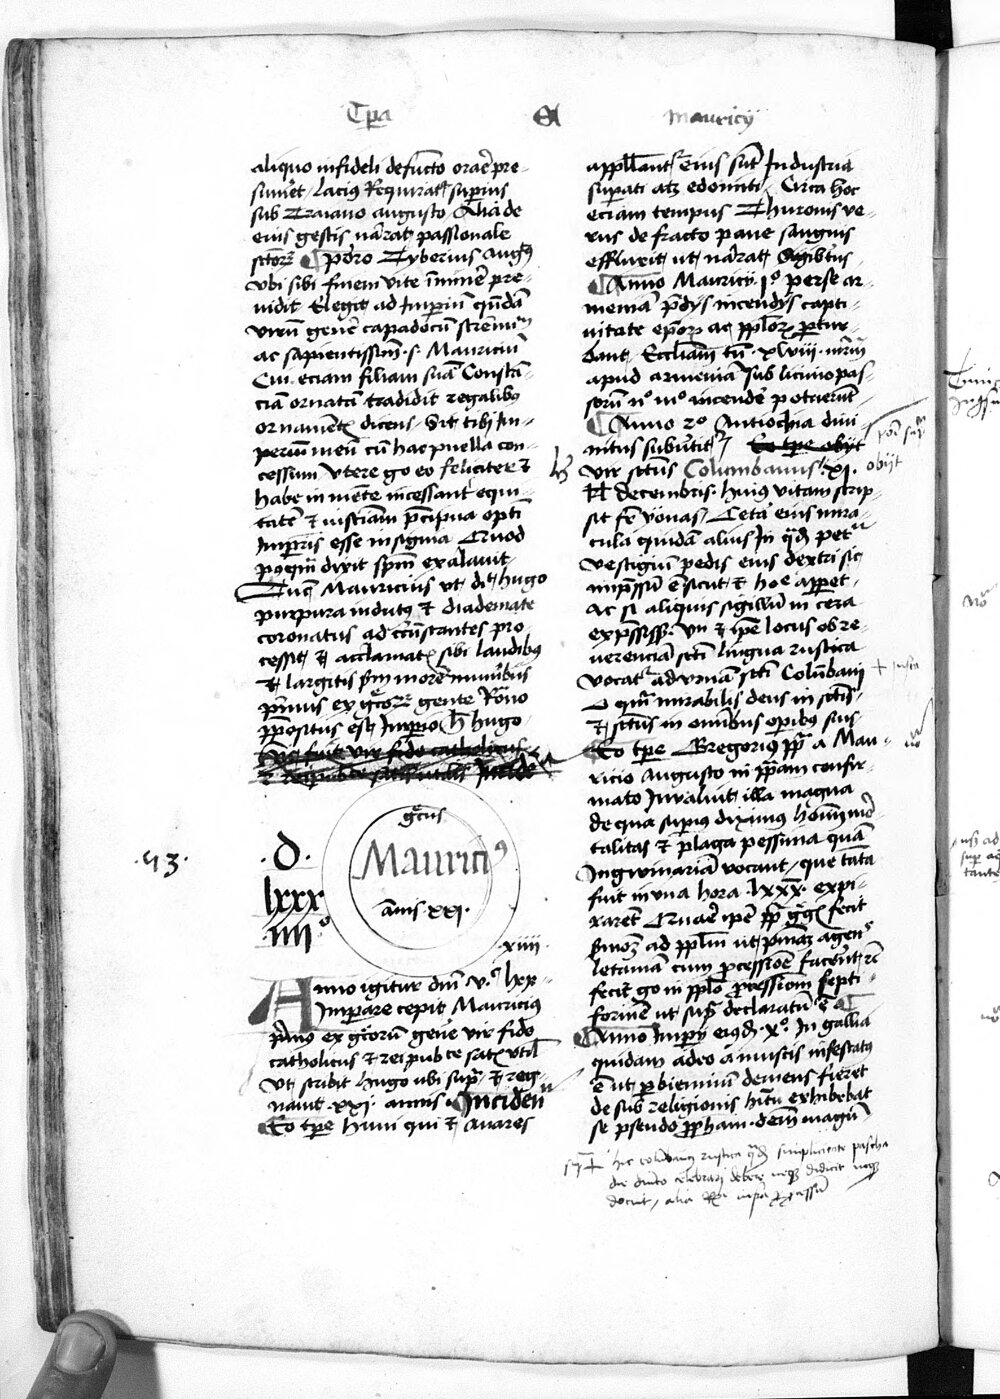 Tpa Et Mauricij
aliquo infideli defuncto orare pre-
sumeret Lacius Requirat superius
sub Traiano augusto Alia de
eius gestis narrat passionale
sctorum Porro Tyberius Augus
ubi sibi finem vite imminere pre-
vidit Elegit ad Imperium quendam
virum genere capadocum strenuum
ac sapientissimum .s. Mauricium
Cui eciam filiam suam Constan-
ciam ornatam tradidit regalibus
ornamentis dicens Sit tibi Im-
perium meum cum hac puella con-
cessum Utere go eo feliciter et
habe in mente incessanter equi-
tatem et iusticiam precipua opti
Imperatoris esse insignia Quod
postquam dixit spm exalavit
Tunc Mauricius ut dicit hugo
purpura indutus et diademate
coronatus ad circumstantes pro-
cessit et acclamatis sibi laudibus
et largitis pm morem muneribus
primus ex grecorum gente Romano
prepositus est Imperio hec hugo
grecus
Mauricius
annis xxi.
.d.
lxxx
iiii°
.43.
xiiii
Anno igitur dni v.c lxxx
Imperare cepit Mauricius
primus ex grecorum genere vir fide
catholicus et rei publice satis utilis
ut scribit hugo ubi supra et reg-
navit .xxi. annis. Inciden
Eo tpe huni qui et Avares
appellantur eius sunt Industria
superati atque edomiti Circa hoc
eciam tempus Thuronis ve-
rus de fracto pane sanguis
effluxit ut narrat Sigibertus
Anno Mauricij 1° perse ar-
meniam predijs incendijs capti-
vitate eporum ac pplorum pertur-
bant Ecclesiam tamen .xlviii. martirum
apud armeniam sub licinio pas-
sorum nullo modo incendere potuerunt
Anno 2° Antiochia divi-
nitus subvertitur Eo tpe obijt
vir sctus Columbanus .xi. obijt
kl decembris. huius vitam scrip-
sit fr yonas Cetera eius mira-
cula quidam alius In quadam petra
vestigium pedis eius dextri sic
impressum est sicut et hoc apparet
Ac si aliquis sigillum in cera
expressisset Unde et ipse locus ob re-
verenciam scti lingua rustica
vocatur ad urnam scti Columbani + iusta
O quam mirabilis deus in sctis
et sctus in omnibus operibus suis
Eo tpe Gregorius pp a Mau-
ricio Augusto in papam confir-
mato Invaluit illa magna
de qua superius diximus hominum mor
talitas et plaga pessima quam
Inguinariam vocant que tanta
fuit in una hora .lxxx. expi-
rarent Quare ipse pp greg fecit
sermonem ad pplm ut penitenciam agens
letaniam cum processione facerent et
fecit go in pplo processionem septi-
formem ut supra declaratum est
Anno Impij eiusdem .x° In gallia
quidam adeo a muscis infestatus
est ut per biennium demens fieret
de sub religionis habitu exhibebat
se pseudo propham. demum magnum
hic columbanus rustica quadam simplicitate pascha
die dnico celebrari debere neque didicit neque
docuit, alia